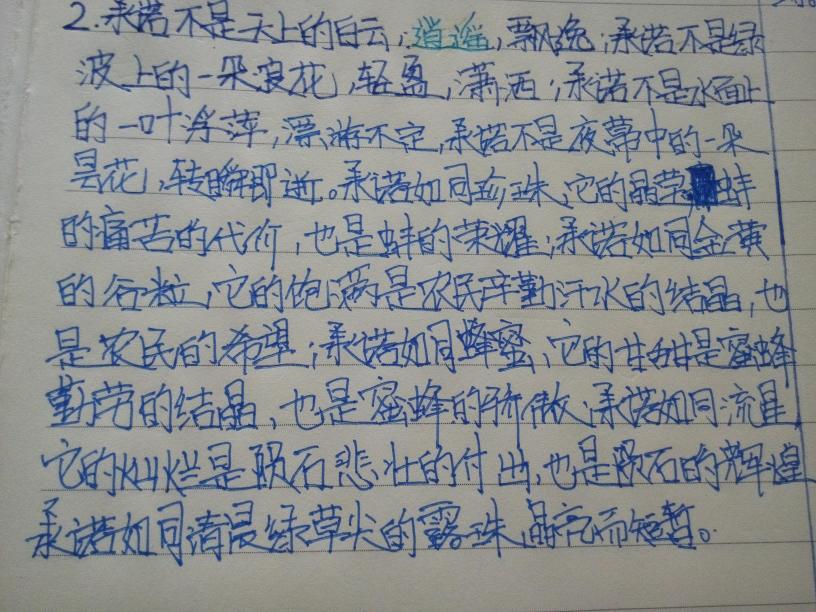 2.承诺不是天上的白云,逍遥,飘逸,承诺不是绿
波上的一朵浪花,轻盈,潇洒;承诺不是水面上
的一叶浮萍,漂游不定,承诺不是夜幕中的一朵
昙花,转瞬即逝。承诺如同珍珠,它的晶莹是蚌
的痛苦的代价,也是蚌的荣耀;承诺如同金黄
的谷粒,它的饱满是农民辛勤汗水的结晶,也
是农民的希望;承诺如同蜂蜜,它的甘甜是蜜蜂
勤劳的结晶,也是蜜蜂的骄傲;承诺如同流星,
它的灿烂是陨石悲壮的付出,也是陨石的辉煌
承诺如同清晨绿草尖的露珠,晶亮而短暂。